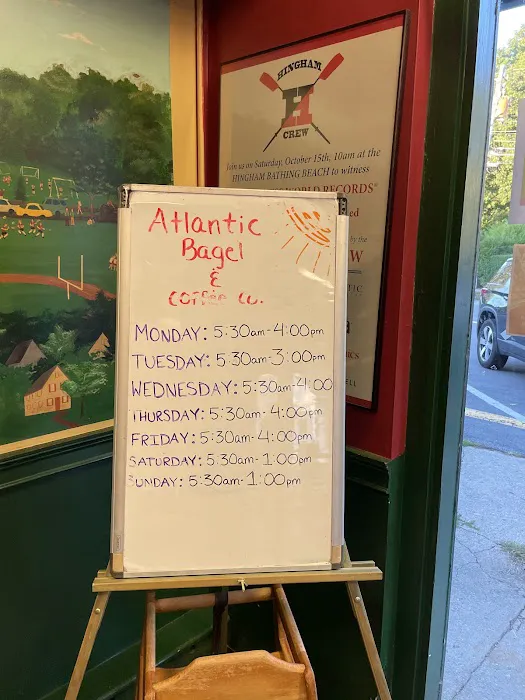 HINGHAM
H
CREW
Join us on Saturday, October 15th, 10am at the
HINGHAM BATHING BEACH to witness
WORLD RECORDS®
by the
W
Atlantic
Bagel
&
COFFEE CO.
MONDAY: 5:30am-4:00pm
TUESDAY: 5:30am-3:00pm
WEDNESDAY: 5:30am-4:00
THURSDAY: 5:30am-4:00pm
FRIDAY: 5:30am-4:00pm
SATURDAY: 5:30am-1:00pm
SUNDAY: 5:30am-1:00pm